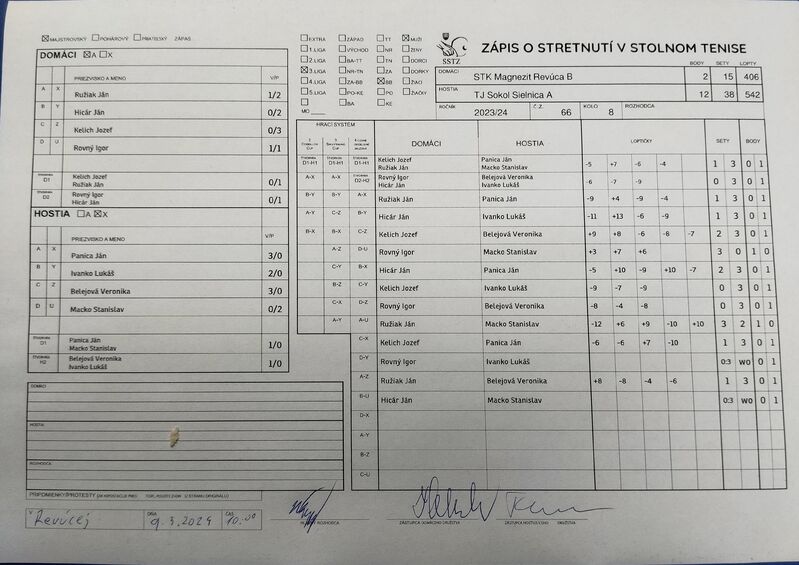 MAJSTROVSKÝ POHÁROVÝ PRIATEĽSKÝ ZÁPAS
EXTRA ZÁPAD TT MUŽI
1.LIGA VÝCHOD NR ŽENY
2.LIGA BA-TT TN DORCI
3.LIGA NR-TN ZA DORKY
4.LIGA ZA-BB BB ŽIACI
5.LIGA PO-KE PO ŽIAČKY
BA KE
MO
SSTZ
ZÁPIS O STRETNUTÍ V STOLNOM TENISE
BODY SETY LOPTY
DOMÁCI STK Magnezit Revúca B 2 15 406
HOSTIA TJ Sokol Sielnica A 12 38 542
ROČNÍK 2023/24 Č.Z. 66 KOLO 8 ROZHODCA
DOMÁCI A X
PRIEZVISKO A MENO V/P
A X Ružiak Ján 1/2
B Y Hicár Ján 0/2
C Z Kelich Jozef 0/3
D U Rovný Igor 1/1
ŠTVORHRA D1 Kelich Jozef
Ružiak Ján 0/1
ŠTVORHRA D2 Rovný Igor
Hicár Ján 0/1
HOSTIA A X
PRIEZVISKO A MENO V/P
A X Panica Ján 3/0
B Y Ivanko Lukáš 2/0
C Z Belejová Veronika 3/0
D U Macko Stanislav 0/2
ŠTVORHRA D1 Panica Ján
Macko Stanislav 1/0
ŠTVORHRA H2 Belejová Veronika
Ivanko Lukáš 1/0
HRACÍ SYSTÉM
DOMÁCI HOSTIA LOPTIČKY SETY BODY
D1-H1 D1-H1 D1-H1 Kelich Jozef Panica Ján
Ružiak Ján Macko Stanislav -5 +7 -6 -4 1 3 0 1
A-X A-X D2-H2 Rovný Igor Belejová Veronika
Hicár Ján Ivanko Lukáš -6 -7 -9 0 3 0 1
B-Y B-Y A-X Ružiak Ján Panica Ján -9 +4 -9 -4 1 3 0 1
A-Y C-Z B-Y Hicár Ján Ivanko Lukáš -11 +13 -6 -9 1 3 0 1
B-X B-X C-Z Kelich Jozef Belejová Veronika +9 +8 -6 -8 -7 2 3 0 1
A-Z D-U Rovný Igor Macko Stanislav +3 +7 +6 3 0 1 0
C-Y B-X Hicár Ján Panica Ján -5 +10 -9 +10 -7 2 3 0 1
B-Z C-Y Kelich Jozef Ivanko Lukáš -9 -7 -9 0 3 0 1
C-X D-Z Rovný Igor Belejová Veronika -8 -4 -8 0 3 0 1
A-Y A-U Ružiak Ján Macko Stanislav -12 +6 +9 -10 +10 3 2 1 0
C-X Kelich Jozef Panica Ján -6 -6 +7 -10 1 3 0 1
D-Y Rovný Igor Ivanko Lukáš 0:3 WO 0 1
A-Z Ružiak Ján Belejová Veronika +8 -8 -4 -6 1 3 0 1
B-U Hicár Ján Macko Stanislav 0:3 WO 0 1
D-X
A-Y
B-Z
C-U
DOMÁCI
HOSTIA
ROZHODCA
PRIPOMIENKY/PROTESTY
V Revúcej DŇA 9.3.2024 ČAS 10:00
ROZHODCA ZÁSTUPCA DOMÁCEHO DRUŽSTVA ZÁSTUPCA HOSŤUJÚCEHO DRUŽSTVA